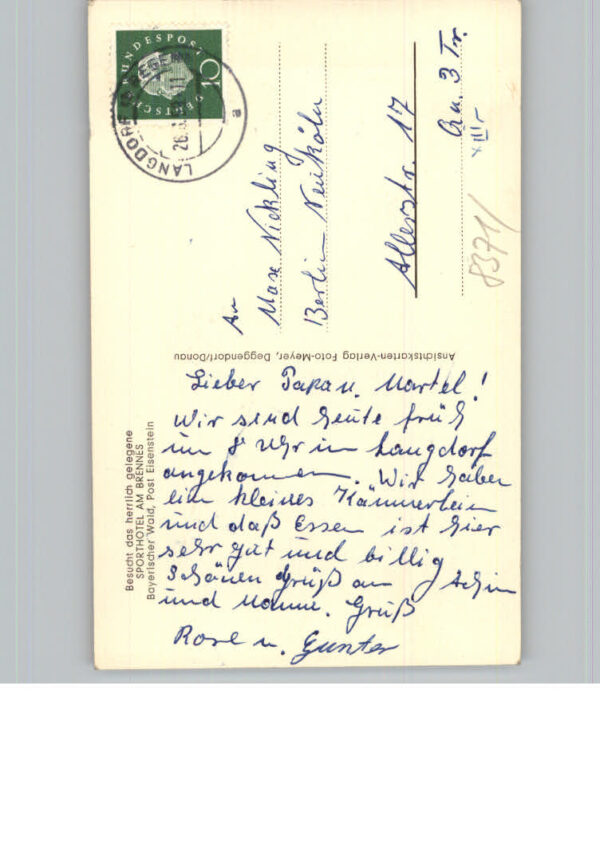 DEUTSCHE BUNDESPOST
10
LANGDORF
26.
11
a
An
Max Nickling
Berlin Neukölln
Allerstr. 17
Qu. 3 Tr.
XIII-
8371/
Ansichtskarten-Verlag Foto-Meyer, Deggendorf/Donau
Besucht das herrlich gelegene
SPORTHOTEL AM BRENNES
Bayerischer Wald, Post Eisenstein
Lieber Papa u. Martel!
Wir sind heute früh
um 8 Uhr in Langdorf
angekommen. Wir haben
ein kleines Kämmerlein
und daß Essen ist hier
sehr gut und billig
Schönen Gruß an
und Gruß
u. Günter